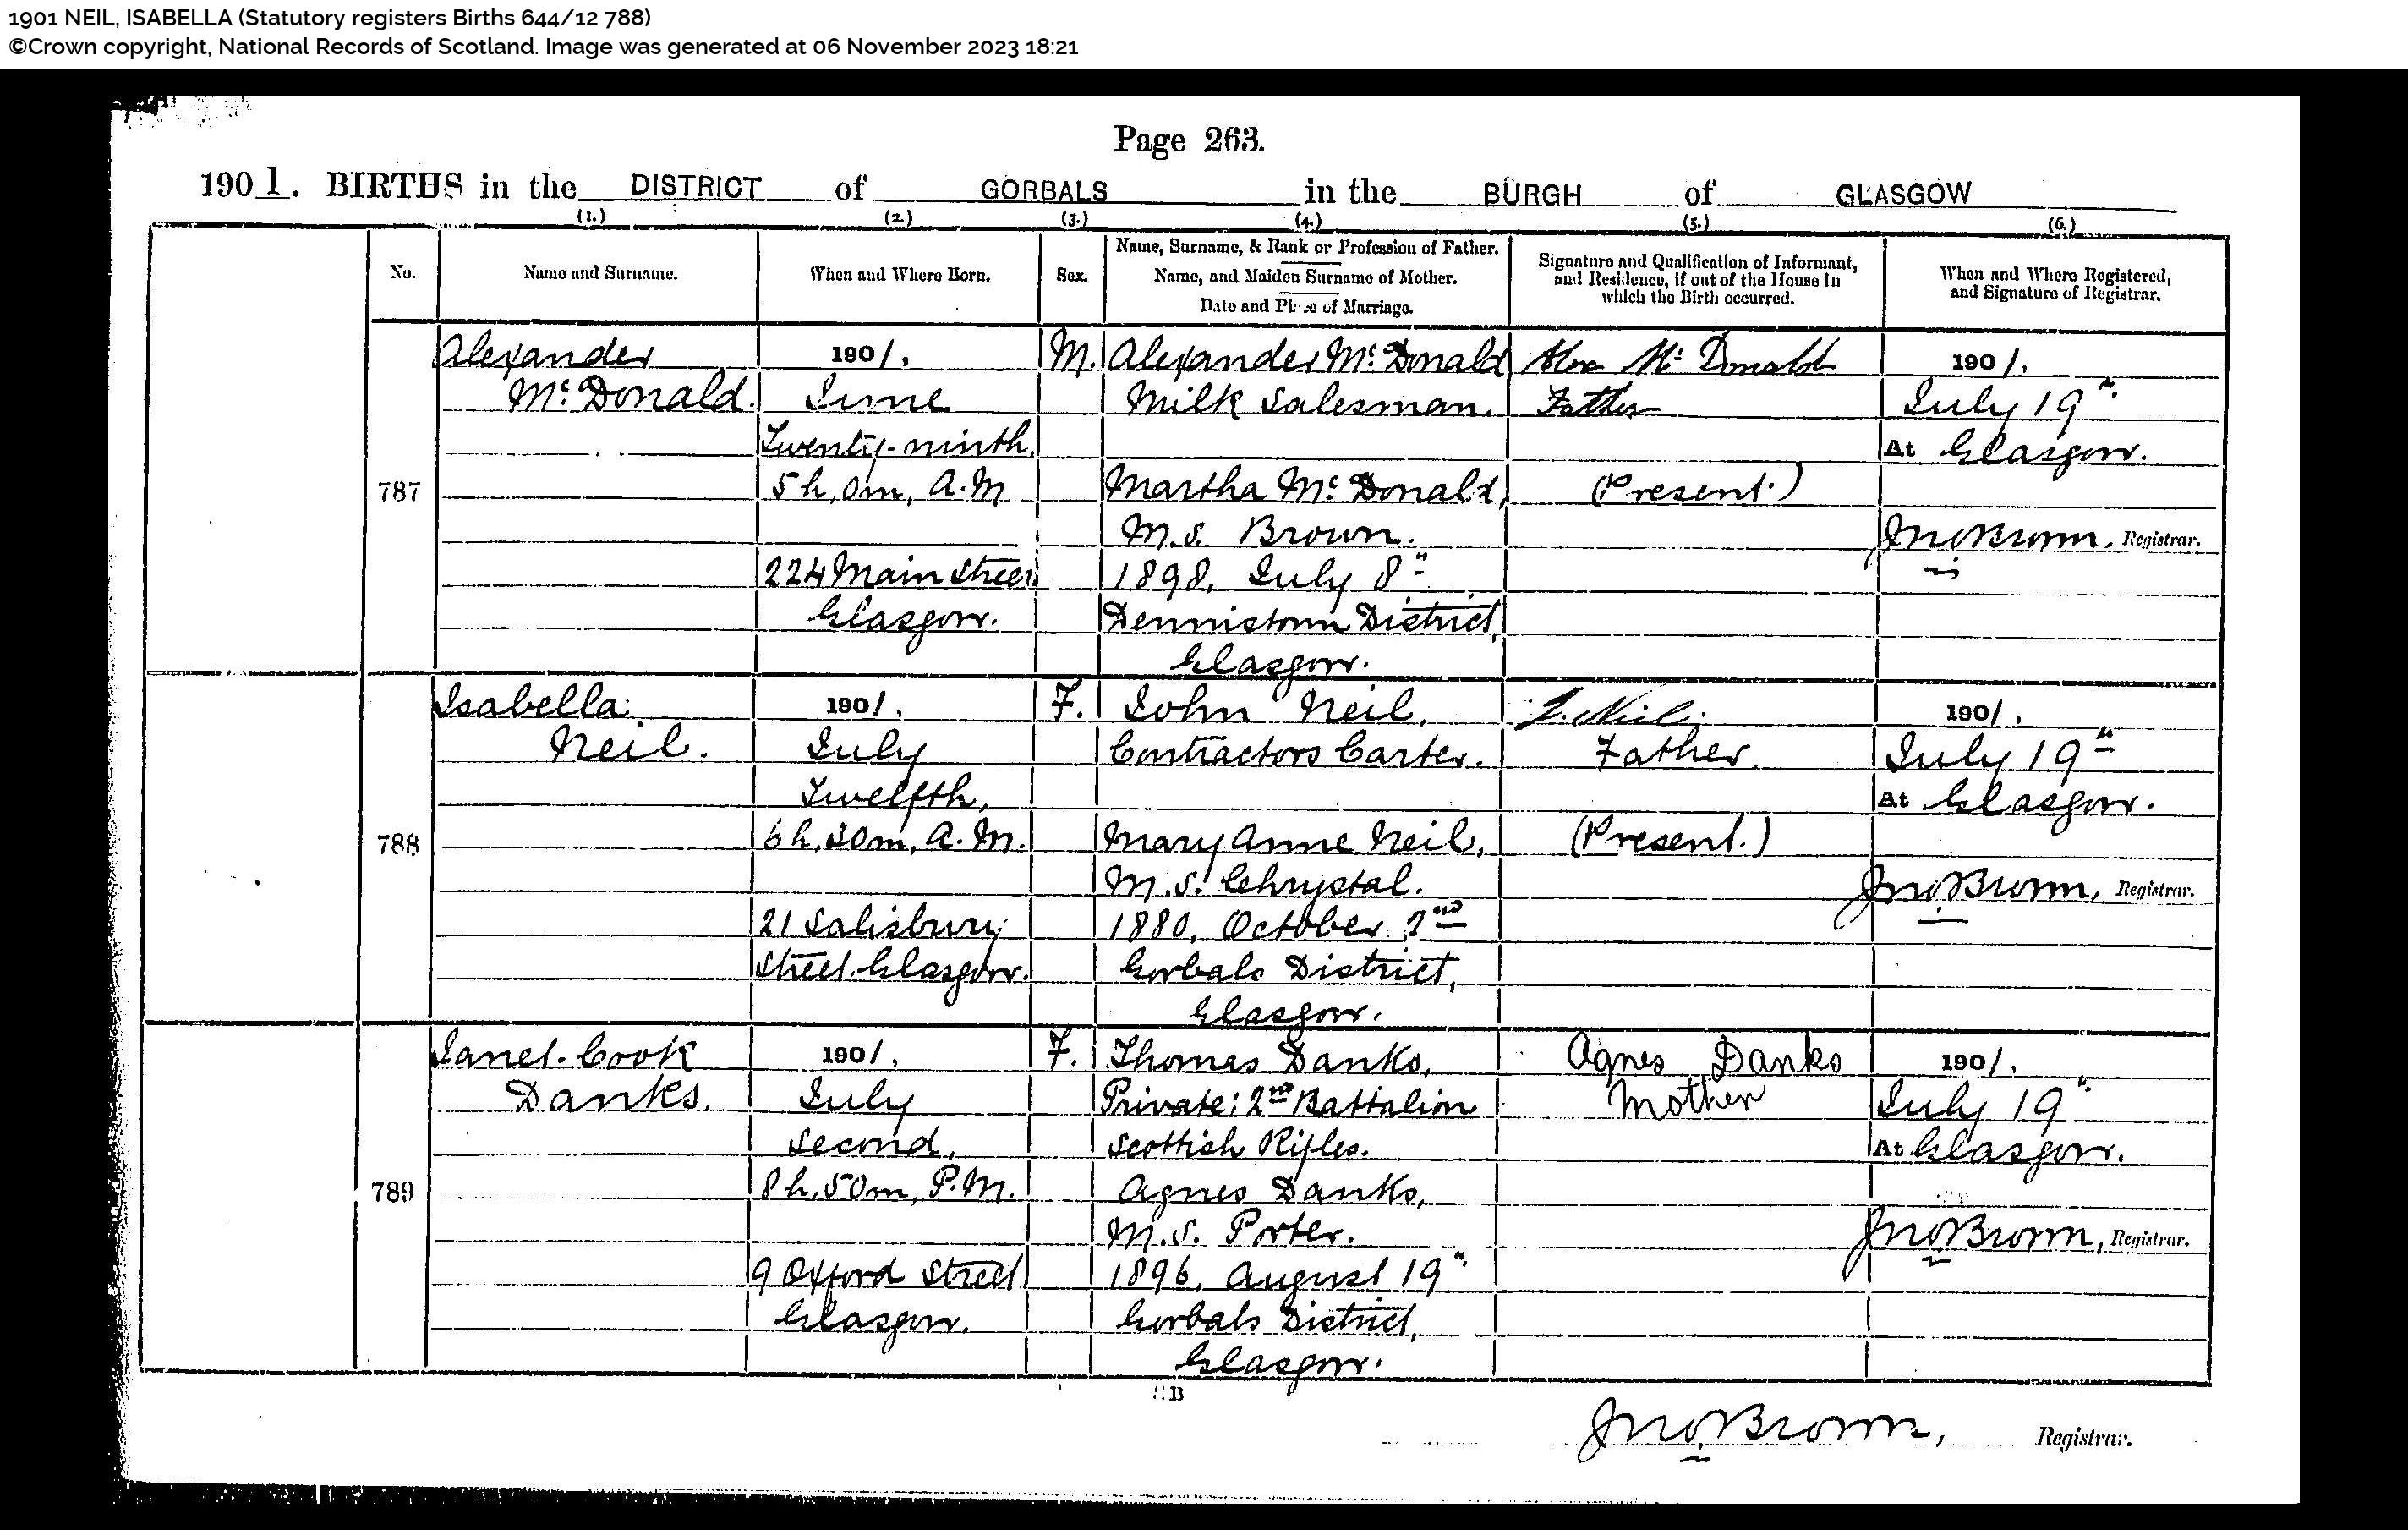 1901 NEIL, ISABELLA (Statutory registers Births 644/12 788)
©Crown copyright, National Records of Scotland. Image was generated at 06 November 2023 18:21
Page 263.
1901. BIRTHS in the DISTRICT of GORBALS in the BURGH of GLASGOW
(1.) (2.) (3.) (4.) (5.) (6.)
No.
Name and Surname.
When and Where Born.
Sex.
Name, Surname, & Rank or Profession of Father.
Name, and Maiden Surname of Mother.
Date and Place of Marriage.
Signature and Qualification of Informant,
and Residence, if out of the House in
which the Birth occurred.
When and Where Registered,
and Signature of Registrar.
787
Alexander
McDonald.
1901,
June
Twenty-ninth,
5h, 0m, A.M
224 Main Street
Glasgow.
M.
Alexander McDonald
Milk Salesman.
Martha McDonald,
M.S. Brown.
1898, July 8"
Dennistoun District,
Glasgow.
Alex McDonald
Father
(Present.)
1901,
July 19"
At Glasgow.
Jno Brown, Registrar.
788
Isabella
Neil.
1901,
July
Twelfth,
6h, 30m, A.M.
21 Salisbury
Street. Glasgow.
F.
John Neil,
Contractors Carter.
Mary Anne Neil,
M.S. Chrystal.
1880, October 2nd
Gorbals District,
Glasgow.
J. Neil.
Father.
(Present.)
1901,
July 19"
At Glasgow.
Jno Brown, Registrar.
789
Janet Cook
Danks.
1901,
July
Second,
8h, 50m, P.M.
9 Oxford Street
Glasgow.
F.
Thomas Danks,
Private: 2nd Battalion
Scottish Rifles.
Agnes Danks,
M.S. Porter.
1896, August 19"
Gorbals District,
Glasgow.
Agnes Danks
Mother
1901,
July 19"
At Glasgow.
Jno Brown, Registrar.
Jno Brown, Registrar.